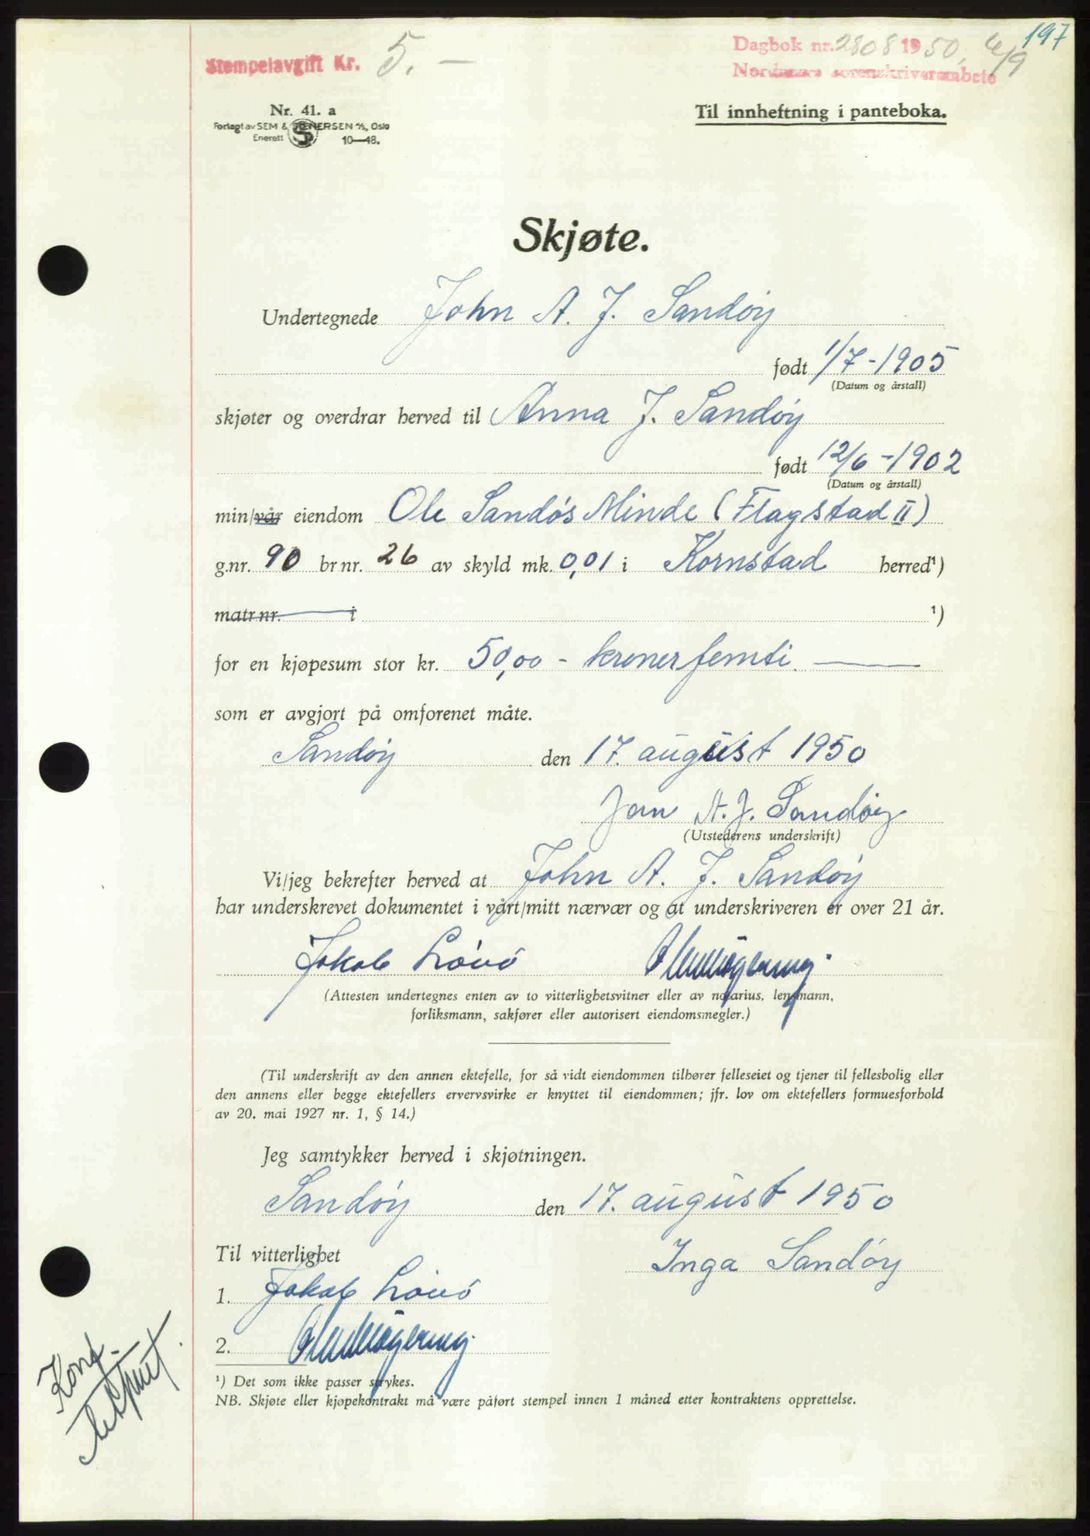 197
Stempelavgift Kr. 5.-
Dagbok nr. 2808 1950, 6/9
Nordmøre sorenskriverembete
Nr. 41. a
Forlagt av SEM & STENERSEN A/S, Oslo
Enerett 10-48.
Til innheftning i panteboka.
Skjøte.
Undertegnede John A. J. Sandøy
født 1/7-1905
(Datum og årstall)
skjøter og overdrar herved til Anna J. Sandøy
født 12/6-1902
(Datum og årstall)
min/vår eiendom Ole Sandøs Minde (Flagstad II)
g.nr. 90 br nr. 26 av skyld mk. 0,01 i Kornstad herred¹)
matr.nr. i ¹)
for en kjøpesum stor kr. 50,00 - kroner femti.
som er avgjort på omforenet måte.
Sandøy den 17. august 1950
Jon A. J. Sandøy
(Utstederens underskrift)
Vi/jeg bekrefter herved at John A. J. Sandøy
har underskrevet dokumentet i vårt/mitt nærvær og at underskriveren er over 21 år.
Jakob Løvø
(Attesten undertegnes enten av to vitterlighetsvitner eller av notarius, lensmann,
forliksmann, sakfører eller autorisert eiendomsmegler.)
(Til underskrift av den annen ektefelle, for så vidt eiendommen tilhører felleseiet og tjener til fellesbolig eller
den annens eller begge ektefellers ervervsvirke er knyttet til eiendommen; jfr. lov om ektefellers formuesforhold
av 20. mai 1927 nr. 1, § 14.)
Jeg samtykker herved i skjøtningen.
Sandøy den 17. august 1950
Til vitterlighet Inga Sandøy
1. Jakob Løvø
2.
¹) Det som ikke passer strykes.
NB. Skjøte eller kjøpekontrakt må være påført stempel innen 1 måned etter kontraktens opprettelse.